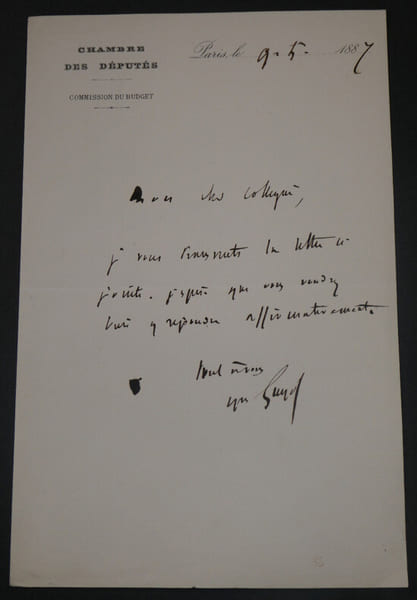 CHAMBRE
DES DÉPUTÉS
COMMISSION DU BUDGET
Paris, le 9. 5. 1887
Mon cher collègue,
je vous transmets la lettre ci
jointe. j'espère que vous voudrez
bien y répondre affirmativement
tout à vous
Yves Guyot